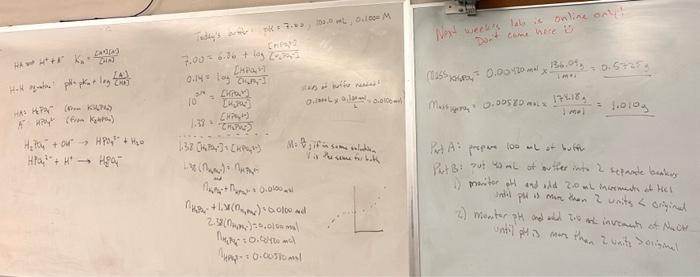 Today's buffer: pH = 7.00, 100.0 mL, 0.1000 M
HA ⇌ H⁺ + A⁻ Ka = [A⁻][H⁺]/[HA]
H-H equation: pH = pKa + log [A⁻]/[HA]
HA: H₂PO₄⁻ (from KH₂PO₄)
A⁻: HPO₄²⁻ (from K₂HPO₄)
H₂PO₄⁻ + OH⁻ → HPO₄²⁻ + H₂O
HPO₄²⁻ + H⁺ → H₂PO₄⁻
7.00 = 6.86 + log [HPO₄²⁻]/[H₂PO₄⁻]
0.14 = log [HPO₄²⁻]/[H₂PO₄⁻]
10^0.14 = [HPO₄²⁻]/[H₂PO₄⁻]
1.38 = [HPO₄²⁻]/[H₂PO₄⁻]
1.38 [H₂PO₄⁻] = [HPO₄²⁻]
1.38 (nH₂PO₄⁻) = nHPO₄²⁻
and
nH₂PO₄⁻ + nHPO₄²⁻ = 0.0100 mol
nH₂PO₄⁻ + 1.38(nH₂PO₄⁻) = 0.0100 mol
2.38(nH₂PO₄⁻) = 0.0100 mol
nH₂PO₄⁻ = 0.00420 mol
nHPO₄²⁻ = 0.00580 mol
of buffer needed:
0.1000 L × 0.1000 mol/L = 0.0100 mol
M = n/V ; if in same solution,
V is the same for both
Next week's lab is online only!
Don't come here
Mass KH₂PO₄ = 0.00420 mol × 136.09g/1 mol = 0.5725g
Mass = 0.00580 mol × 174.18g/1 mol = 1.010g
Part A: prepare 100 mL of buffer
Part B: put 40 mL of buffer into 2 separate beakers
1) monitor pH and add 2.0 mL increments of HCl
until pH is more than 2 units < original
2) monitor pH and add 2.0 mL increments of NaOH
until pH is more than 2 units > original